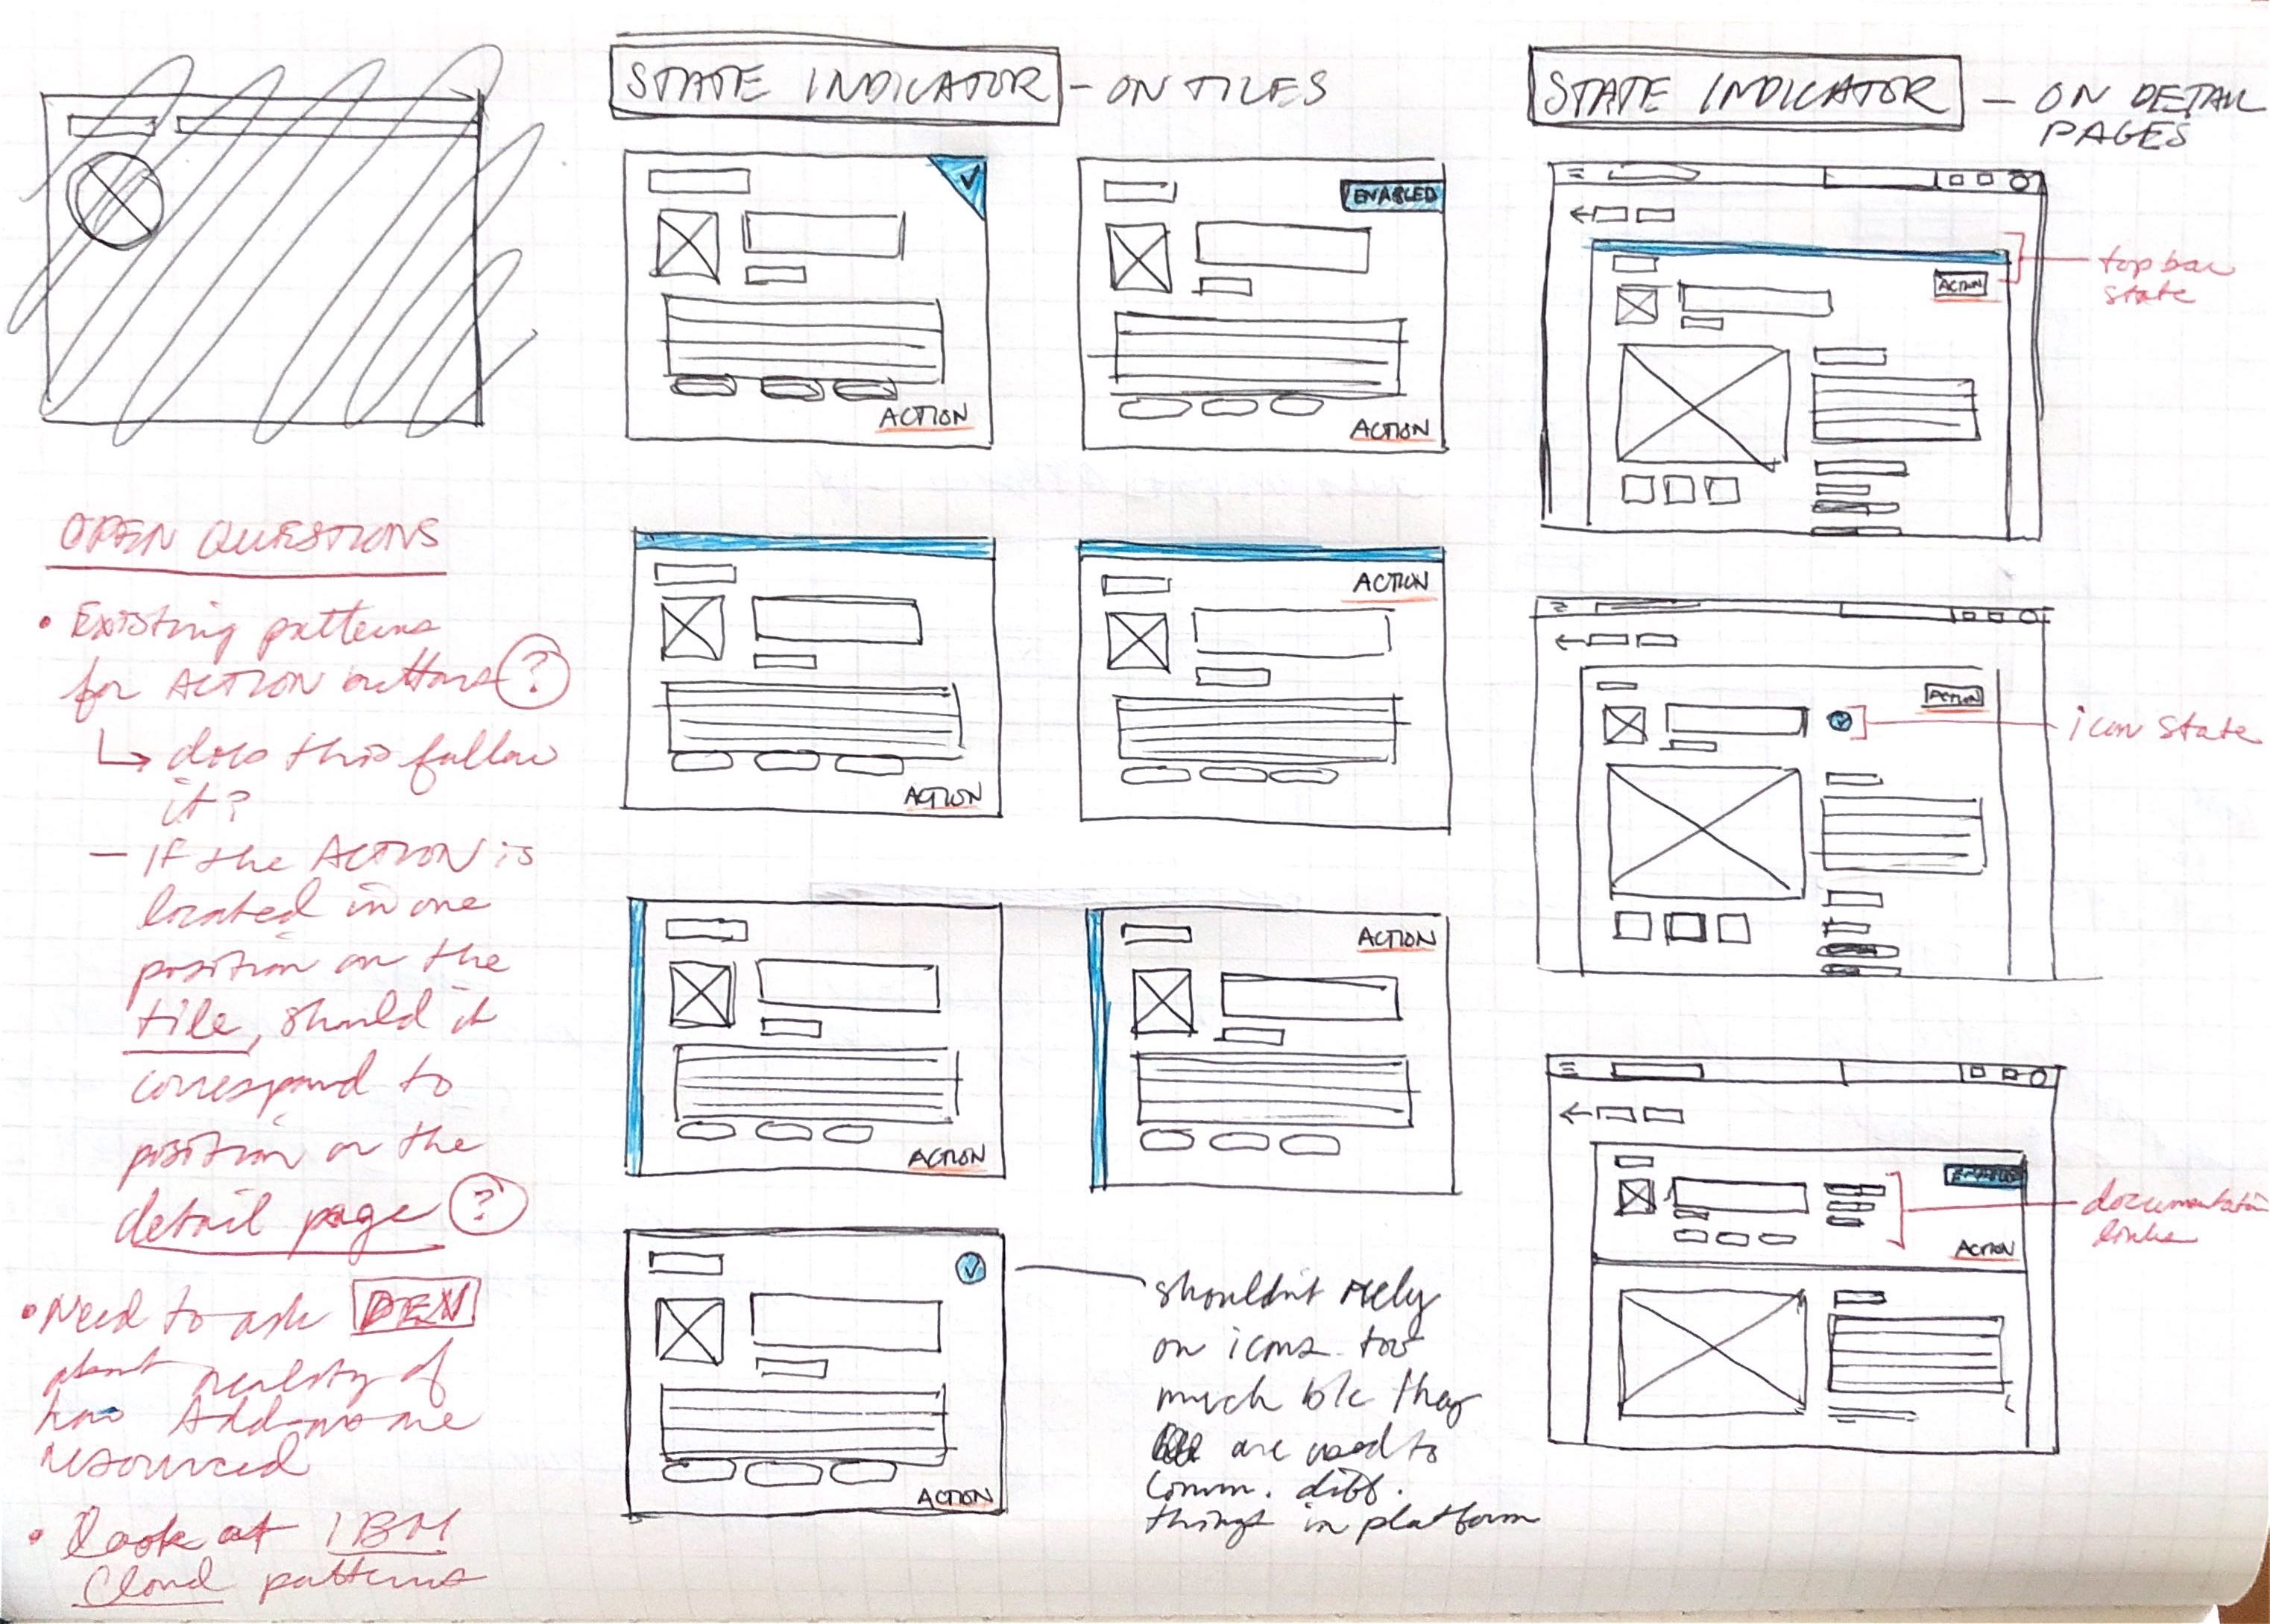 STATE INDICATOR - ON TILES
ENABLED
ACTION
ACTION
ACTION
ACTION
ACTION
ACTION
ACTION
shouldn't rely
on icons too
much b/c they
are used to
comm. diff.
things in platform
STATE INDICATOR - ON DETAIL
PAGES
ACTION
top bar
state
ACTION
icon state
ENABLED
ACTION
documentation
links
OPEN QUESTIONS
• Existing patterns
for ACTION buttons ?
↳ does this follow
it?
- If the ACTION is
located in one
position on the
tile, should it
correspond to
position on the
detail page ?
• Need to ask DEV
about reality of
how Add-ons are
resourced
• Look at IBM
Cloud patterns